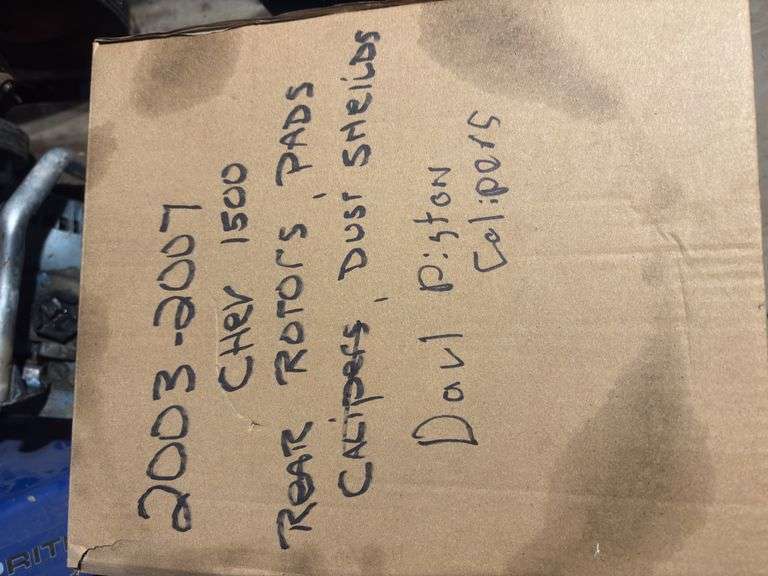 2003-2007
CHEV 1500
REAR ROTORS, PADS
CALipers, DUST SHEiLDS
Daul Piston
Calipers
RIT